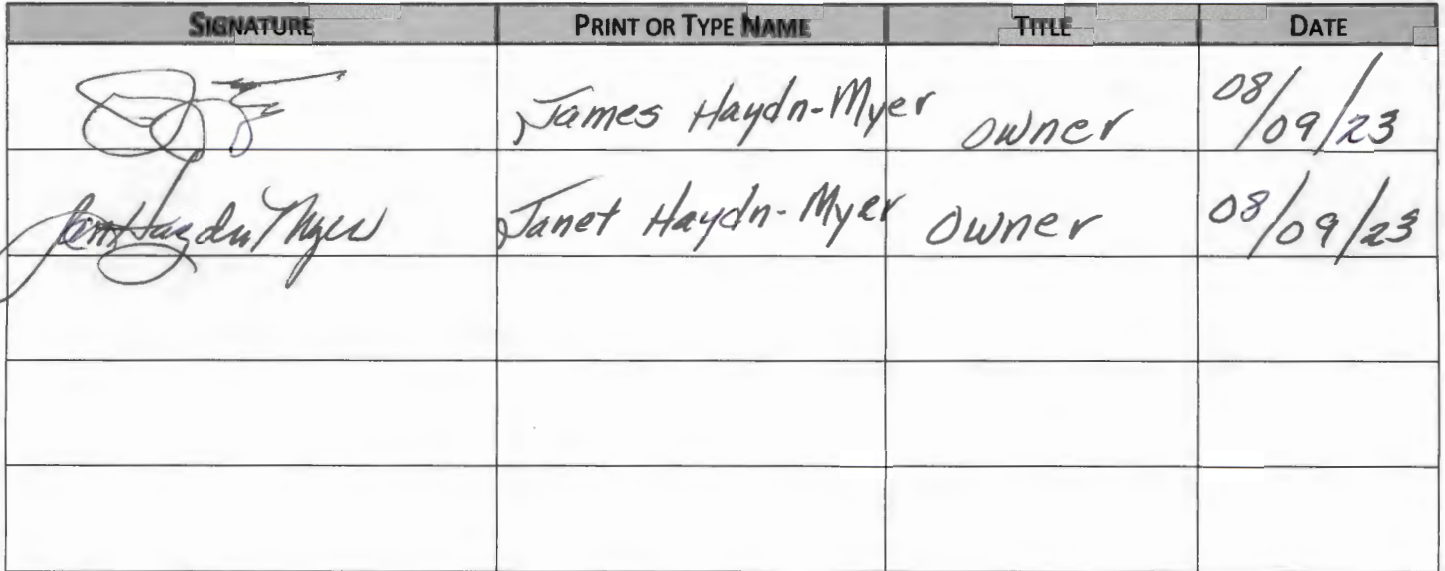 SIGNATURE PRINT OR TYPE NAME TITLE DATE
James Haydn-Myer owner 08/09/23
Haydn Myer Janet Haydn-Myer owner 08/09/23